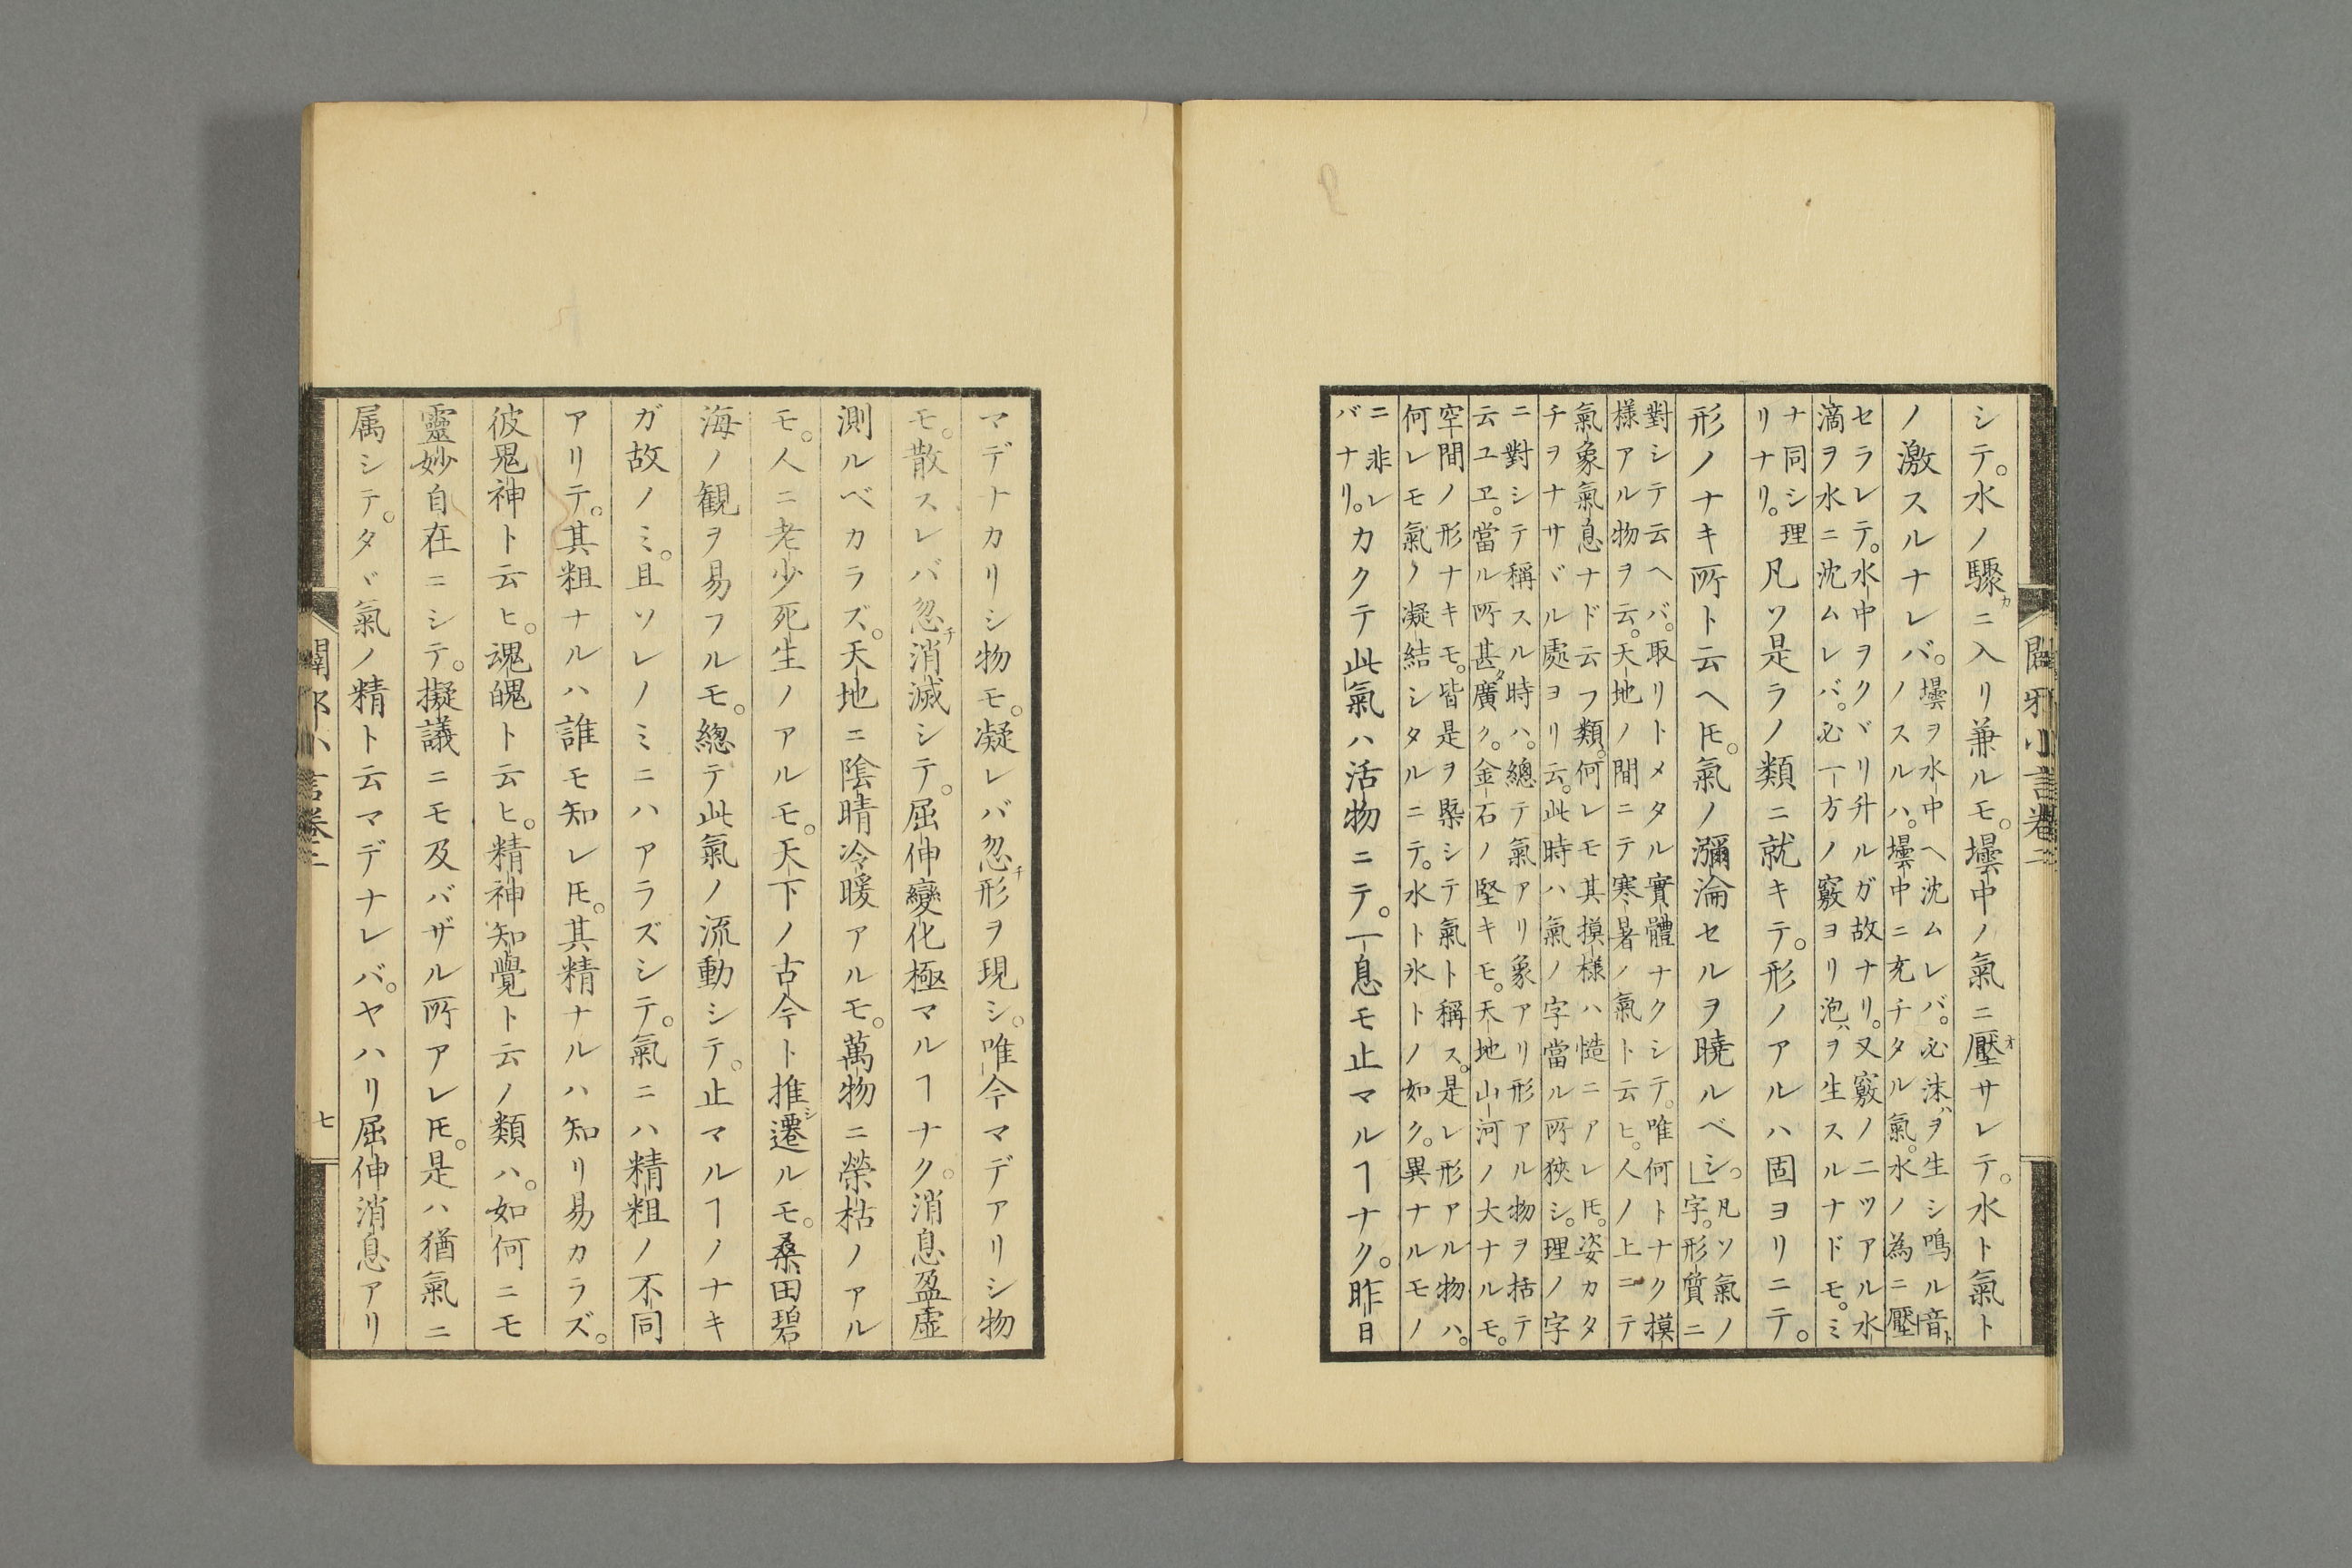 シテ。水ノ驟ニ入リ兼ルモ。壜中ノ氣ニ壓サレテ。水ト氣ト
ノ激スルナレバ。
壜ヲ水中ヘ沈ムレバ。必沫ヲ生シ鳴ル音
ノスルハ。壜中ニ充チタル氣。水ノ為ニ壓
セラレテ。水中ヲクヾリ升ルガ故ナリ。又竅ノ二ツアル水
滴ヲ水ニ沈ムレバ。必一方ノ竅ヨリ泡ヲ生スルナドモ。ミ
ナ同シ理
リナリ。
凡ソ是ラノ類ニ就キテ。形ノアルハ固ヨリニテ。
形ノナキ所ト云ヘ𪜈。氣ノ瀰淪セルヲ曉ルベシ。
凡ソ氣ノ
字。形質ニ
對シテ云ヘバ。取リトメタル實體ナクシテ。唯何トナク摸
樣アル物ヲ云。天地ノ間ニテ寒暑ノ氣ト云ヒ。人ノ上ニテ
氣象氣息ナド云フ類。何レモ其摸樣ハ慥ニアレ𪜈。姿カタ
チヲナサヾル處ヨリ云。此時ハ氣ノ字當ル所狹シ。理ノ字
ニ對シテ稱スル時ハ。總テ氣アリ象アリ形アル物ヲ括テ
云ユヱ。當ル所甚廣ク。金石ノ堅キモ。天地山河ノ大ナルモ。
空間ノ形ナキモ。皆是ヲ槩シテ氣ト稱ス。是レ形アル物ハ。
何レモ氣ノ凝結シタルニテ。水ト氷トノ如ク。異ナルモノ
ニ非レ
バナリ。
カクテ此氣ハ活物ニテ。一息モ止マルヿナク。昨日
闢邪小言卷二
マデナカリシ物モ。凝レバ忽形ヲ現シ。唯今マデアリシ物
モ。散スレバ忽消滅シテ。屈伸變化極マルヿナク。消息盈虚
測ルベカラズ。天地ニ陰晴冷暖アルモ。萬物ニ榮枯ノアル
モ。人ニ老少死生ノアルモ。天下ノ古今ト推遷ルモ。桑田碧
海ノ観ヲ易フルモ。總テ此氣ノ流動シテ。止マルヿノナキ
ガ故ノミ。且ソレノミニハアラズシテ。氣ニハ精粗ノ不同
アリテ。其粗ナルハ誰モ知レ𪜈。其精ナルハ知リ易カラズ。
彼鬼神ト云ヒ。魂魄ト云ヒ。精神知覺ト云ノ類ハ。如何ニモ
靈妙自在ニシテ。擬議ニモ及バザル所アレ𪜈。是ハ猶氣ニ
属シテ。タヾ氣ノ精ト云マデナレバ。ヤハリ屈伸消息アリ
闢邪小言卷二
七